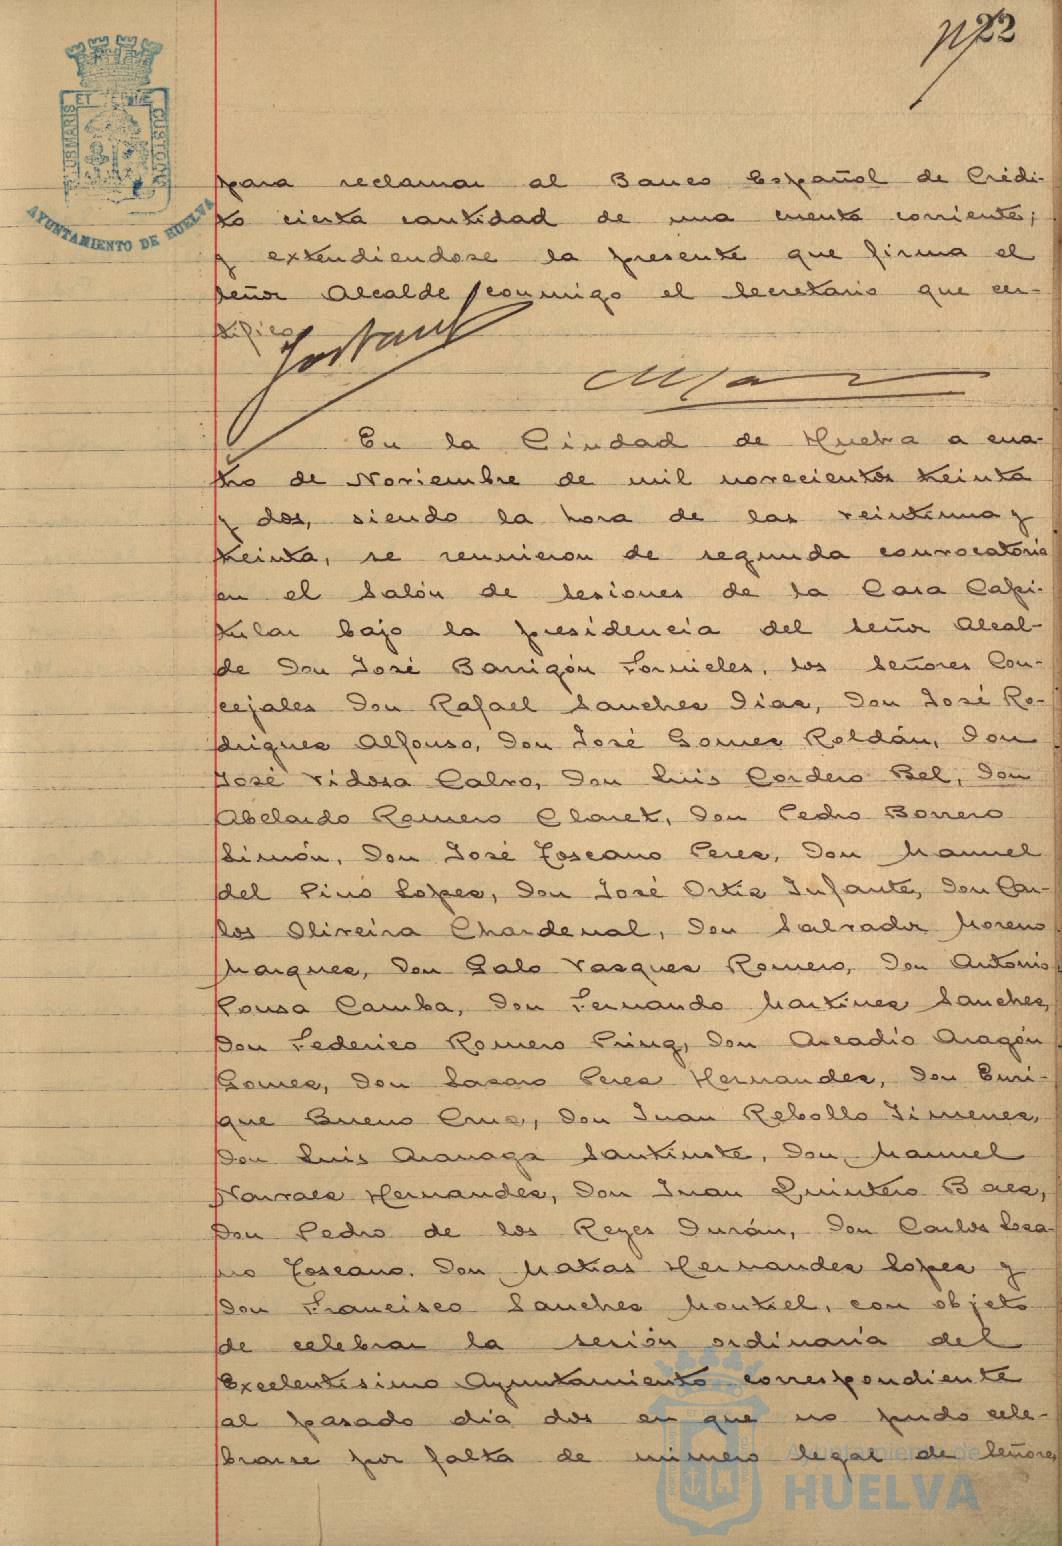 22
PORTUS MARIS ET TERRAE CUSTODIA
AYUNTAMIENTO DE HUELVA
para reclamar al Banco Español de Crédi-
to cierta cantidad de una cuenta corriente;
y extendiendose la presente que firma el
señor Alcalde conmigo el Secretario que cer-
tifico
En la Ciudad de Huelva a cua-
tro de Noviembre de mil novecientos treinta
y dos, siendo la hora de las veintiuna y
treinta, se reunieron de segunda convocatoria
en el Salón de Sesiones de la Casa Capi-
tular bajo la presidencia del señor Alcal-
de Don José Barrigón Fornieles, los Señores Con-
cejales Don Rafael Sanchez Diaz, Don José Ro-
driguez Alfonso, Don José Gomez Roldán, Don
José Vidosa Calvo, Don Luis Cordero Bel, Don
Abelardo Romero Claret, Don Pedro Borrero
Limón, Don José Toscano Perez, Don Manuel
del Pino Lopez, Don José Ortiz Infante, Don Car-
los Oliveira Chardenal, Don Salvador Moreno
Marquez, Don Galo Vazquez Romero, Don Antonio
Pousa Camba, Don Fernando Martinez Sanchez,
Don Federico Romero Pring, Don Arcadio Aragón
Gomez, Don Lazaro Perez Hernandez, Don Enri-
que Bueno Cruz, Don Juan Rebollo Jimenez,
Don Luis Aranaga Santiuste, Don Manuel
Narvaez Hernandez, Don Juan Quintero Baez,
Don Pedro de los Reyes Durán, Don Carlos Loza-
no Toscano, Don Matias Hernandez Lopez y
Don Francisco Sanchez Montiel, con objeto
de celebrar la sesión ordinaria del
Excelentísimo Ayuntamiento correspondiente
al pasado dia dos en que no pudo cele-
brarse por falta de número legal de Señores
Ayuntamiento de
HUELVA